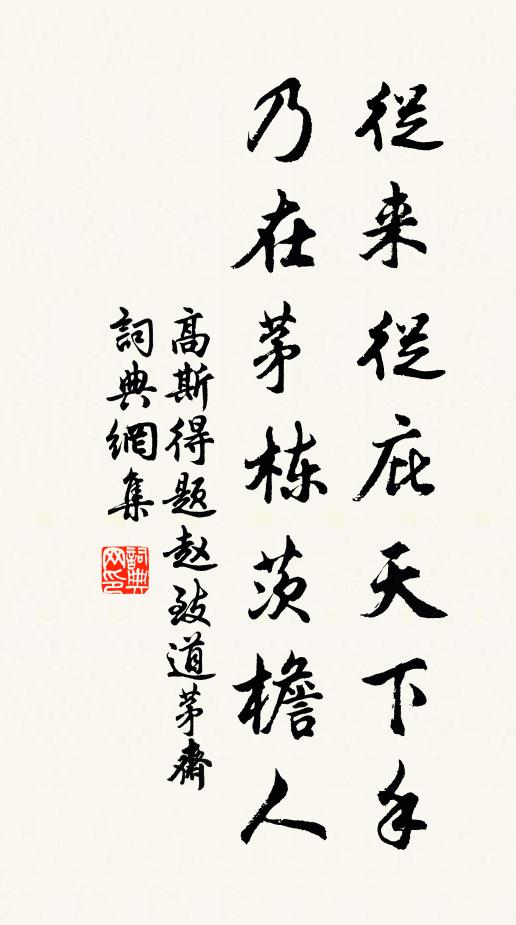 從来從庇天下手
乃在茅栋茨檐人
高斯得题赵致道茅齋
詞典網集
詞典网印